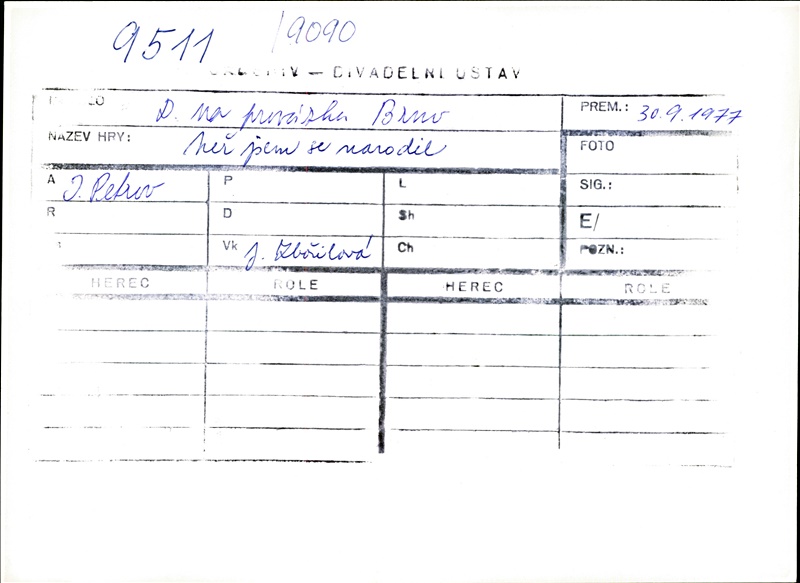 9511 /9090
— DIVADELNÍ ÚSTAV
LO D. na provázku Brno PREM.: 30.9.1977
NÁZEV HRY: než jsem se narodil FOTO
A J. Petrov P L SIG.:
R D Sh E/
Vk J. Zbořilová Ch POZN.:
HEREC ROLE HEREC ROLE